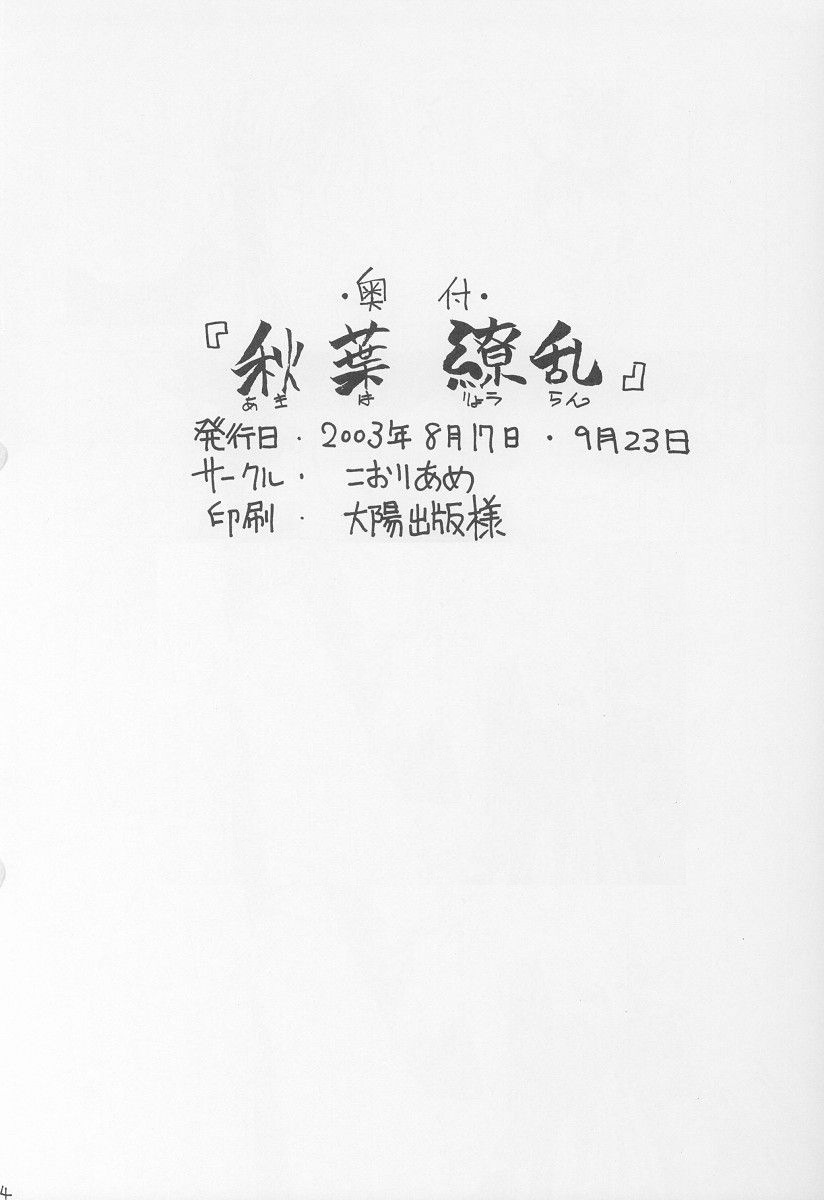 ・奥付・
『秋葉 繚乱』
あきは りょうらん
発行日・2003年8月17日・9月23日
サークル・こおりあめ
印刷・太陽出版様
4